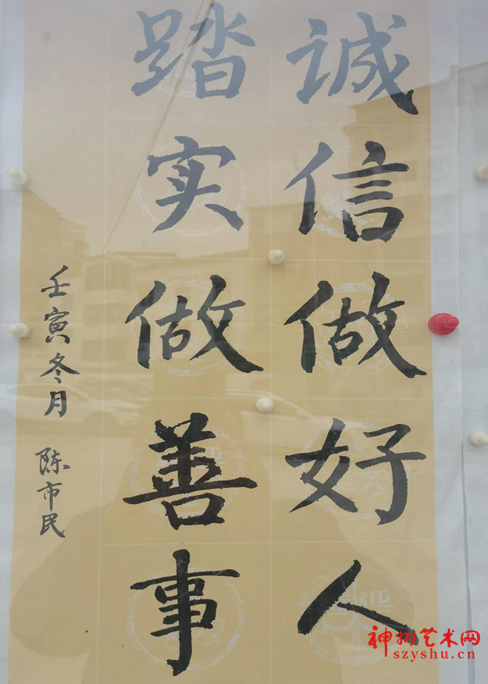 诚信做好人
踏实做善事
壬寅冬月 陈市民
神州艺术网
szyshu.cn